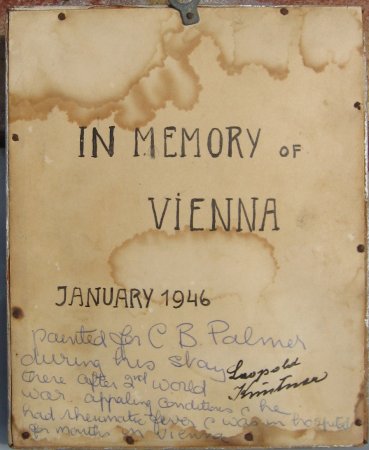 IN MEMORY OF
VIENNA
JANUARY 1946
painted for C B Palmer
during his stay
there after world
war. appaling conditions & he
had rheumatic fever & was in hospital
for months in Vienna
Leopold